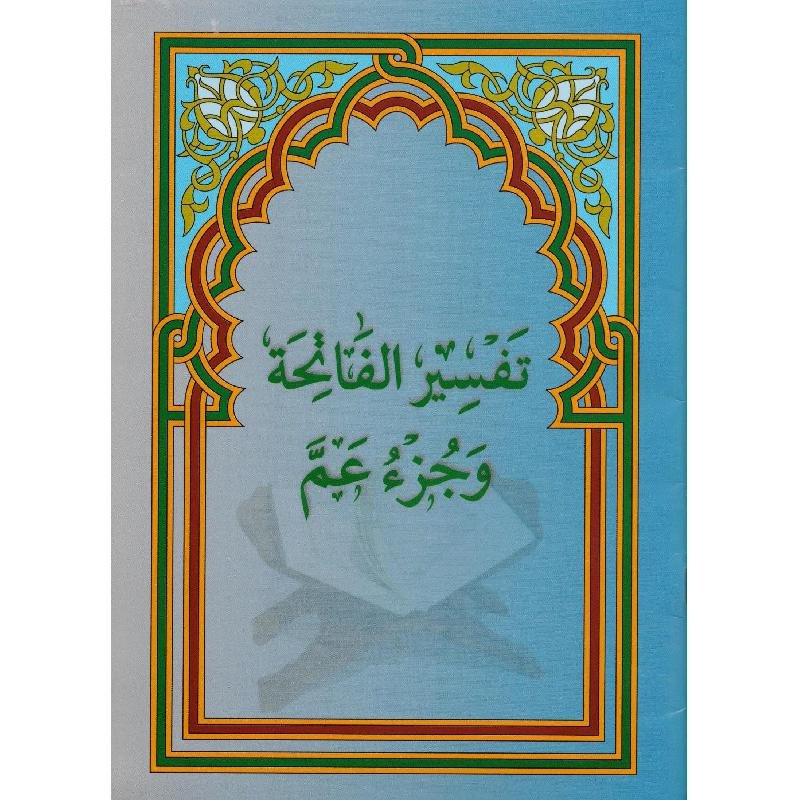 تَفْسِير الفَاتِحَة
وَجُزْءُ عَمَّ